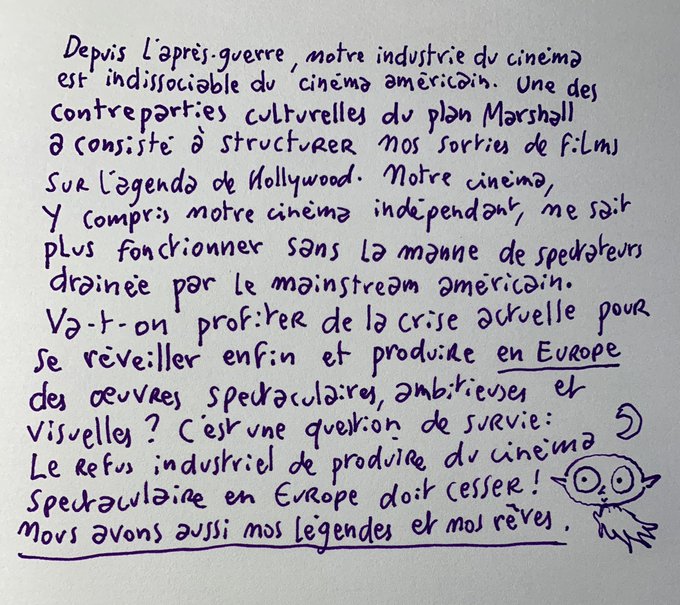 Depuis l'après-guerre, notre industrie du cinéma
est indissociable du cinéma américain. Une des
contreparties culturelles du plan Marshall
a consisté à structurer nos sorties de films
sur l'agenda de Hollywood. Notre cinéma,
y compris notre cinéma indépendant, ne sait
plus fonctionner sans la manne de spectateurs
drainée par le mainstream américain.
Va-t-on profiter de la crise actuelle pour
se réveiller enfin et produire en Europe
des œuvres spectaculaires, ambitieuses et
visuelles ? C'est une question de survie :
Le refus industriel de produire du cinéma
spectaculaire en Europe doit cesser !
Nous avons aussi nos légendes et nos rêves.